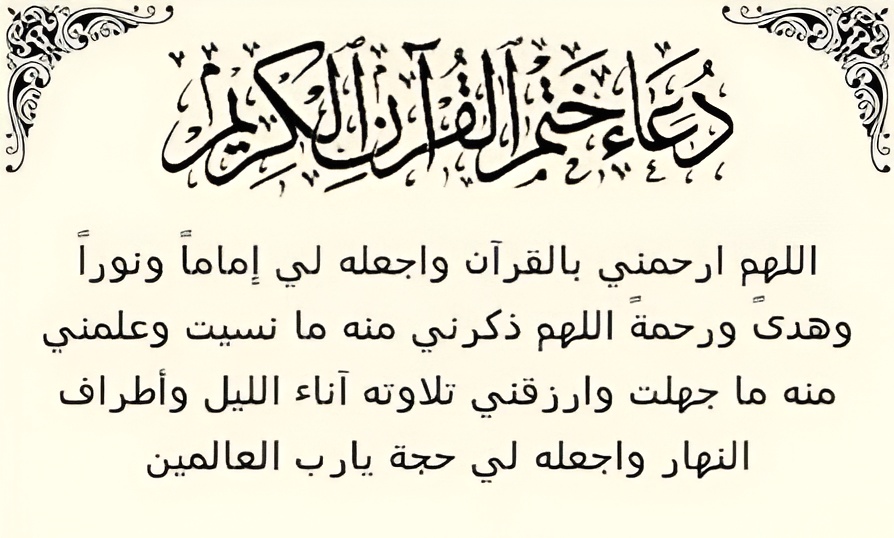 دُعَاءُ خَتْمِ ٱلْقُرْآنِ ٱلْكَرِيمِ
اللهم ارحمني بالقرآن واجعله لي إماماً ونوراً
وهدىً ورحمةً اللهم ذكرني منه ما نسيت وعلمني
منه ما جهلت وارزقني تلاوته آناء الليل وأطراف
النهار واجعله لي حجة يارب العالمين